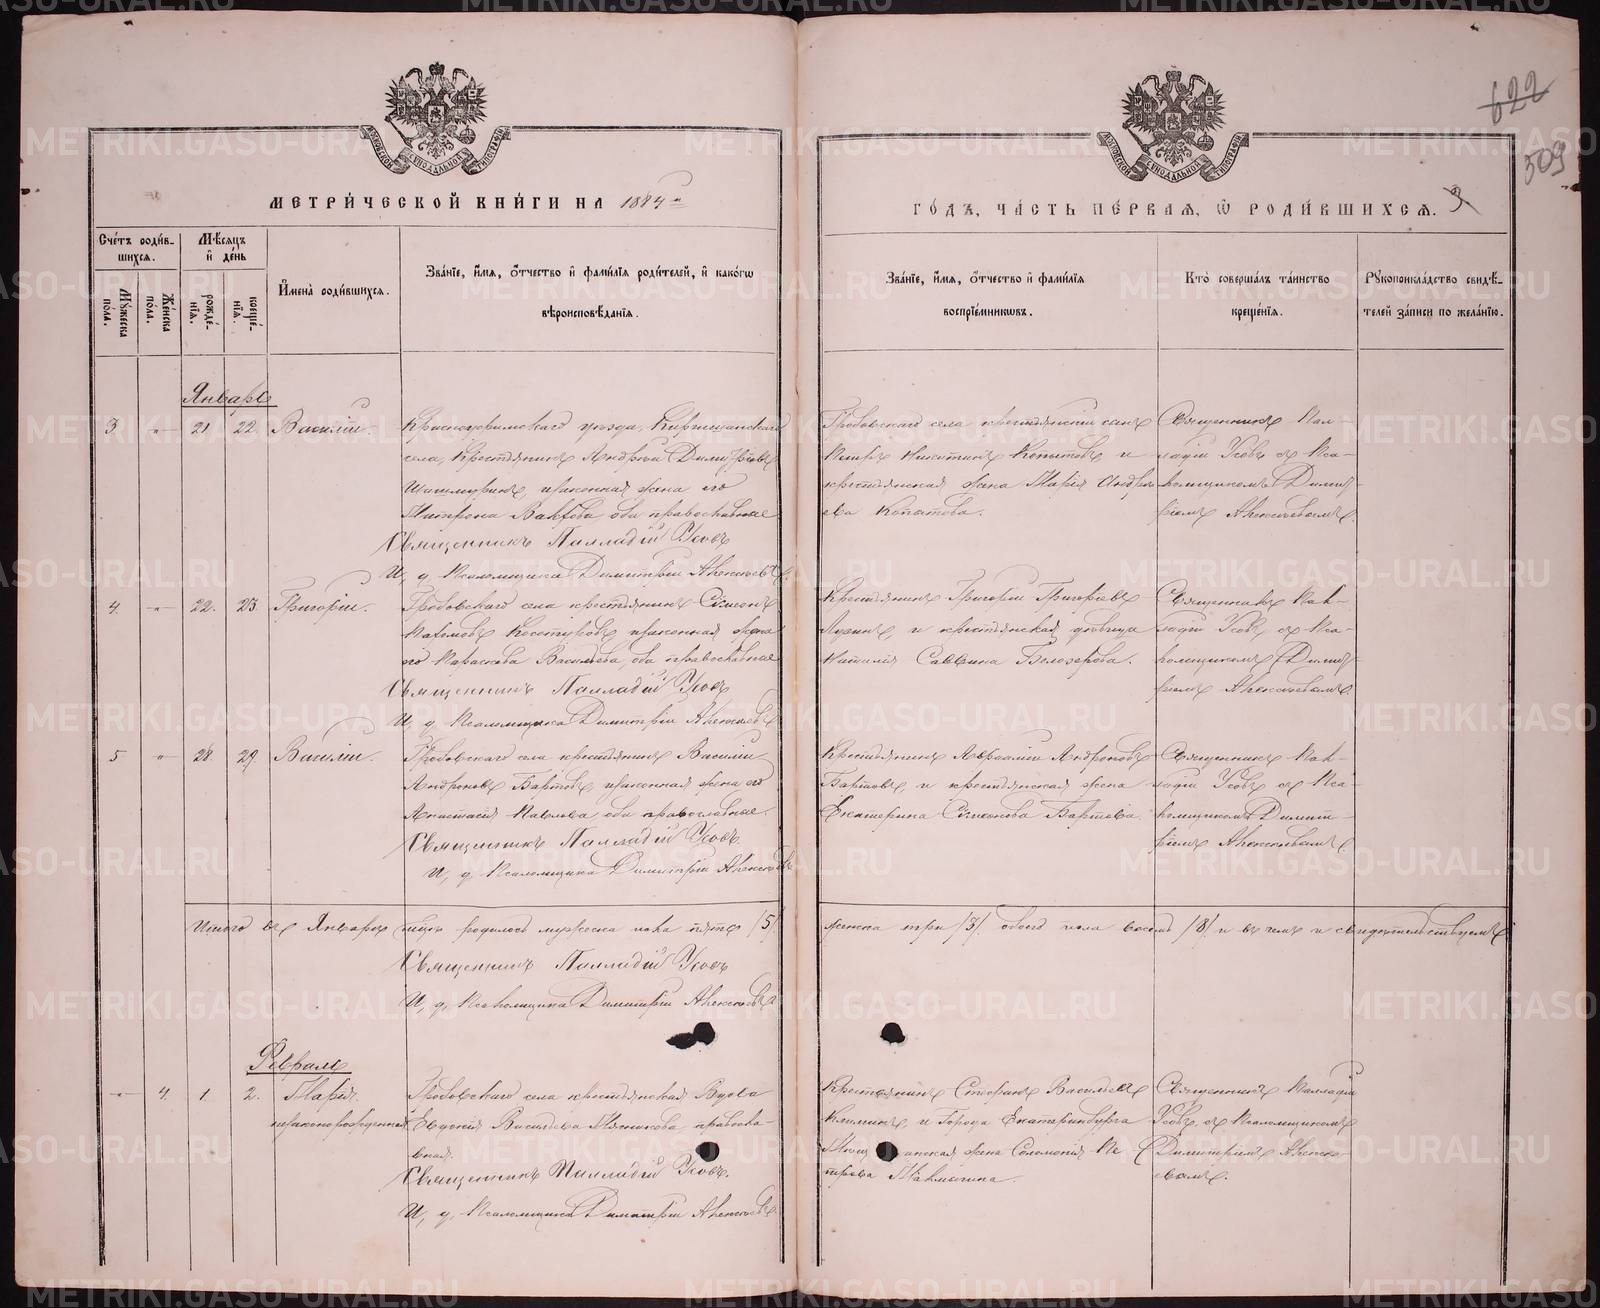 622
509
МОСКОВСКОЙ СУНОДАЛЬНОЙ ТИПОГРАФІИ
МОСКОВСКОЙ СУНОДАЛЬНОЙ ТИПОГРАФІИ
МЕТРИ́ЧЕСКОЙ КНИ́ГИ НА 1884 й
ГО́ДЪ, ЧА́СТЬ ПЕ́РВАѦ, Ѡ҆ РОДИ́ВШИХСѦ. 3
Сче́тъ роди́в-
шихсѧ.
Му́жеска по́ла.
Же́нска по́ла.
Мѣ́сѧцъ и҆ де́нь
рожде́-
нїѧ.
креще́-
нїѧ.
И҆мена̀ роди́вшихсѧ.
Зва́нїе, и҆́мѧ, ѻ҆́тчество и҆ фамѝлїѧ роди́телей, и҆ како́гѡ
вѣроисповѣ́данїѧ.
Зва́нїе, и҆́мѧ, ѻ҆́тчество и҆ фамѝлїѧ
воспрїе́мникѡвъ.
Кто̀ соверша́лъ та́инство
креще́нїѧ.
Рукоприкла́дство свидѣ́-
телей за́писи по жела́нїю.
Январь
3. „ 21 22 Василій.
Красноуфимскаго уѣзда, Киргишанскаго
села, крестьянинъ Андрей Димитріевъ
законная жена его
Матрона оба православные
Священникъ Палладій Усовъ
И, д, Псаломщика Димитрій Алексѣевъ.
Гробовскаго села крестьянскій сынъ
Петръ Никитинъ Копытовъ и
крестьянская жена Марія Андре
ева Копытова.
Священникъ Пал-
ладій Усовъ съ Пса-
ломщикомъ Димит-
ріемъ Алексѣевымъ.
4. „ 22. 23. Григорій.
Гробовскаго села крестьянинъ Симеонъ
Павловъ законная жена
его Параскева Васильева, оба православные
Священникъ Палладій Усовъ
И, д, Псаломщика Димитрій Алексѣевъ
Крестьянинъ Григорій Григорьевъ
и крестьянская дѣвица
Наталія Саввина Бѣлозерова.
Священникъ Пал-
ладій Усовъ съ Пса-
ломщикомъ Димит-
ріемъ Алексѣевымъ.
5 „ 28. 29. Василій.
Гробовскаго села крестьянинъ Василій
Андроновъ Бартовъ, законная жена его
Анастасія Павлова, оба православные.
Священникъ Палладій Усовъ.
И, д, Псаломщика Димитрій Алексѣевъ
Крестьянинъ Авраамій Андроновъ
Бартовъ и крестьянская жена
Екатерина Симеонова Бартова.
Священникъ Пал-
ладій Усовъ съ Пса-
ломщикомъ Димит-
ріемъ Алексѣевымъ.
Итого въ Январѣ мцѣ родилось мужеска пола пять /5/
женска три /3/. обоего пола восемь /8/ и въ чемъ и свидѣтельствуемъ
Священникъ Палладій Усовъ
И, д, Псаломщика Димитрій Алексѣевъ
Февраль
„ 4. 1. 2. Марія
незаконнорожденная
Гробовскаго села крестьянская вдова
Евдокія Васильева Мясникова правосла-
вная.
Священникъ Палладій Усовъ.
И, д, Псаломщика Димитрій Алексѣевъ.
Крестьянинъ Васильевъ
и города Екатеринбурга
Мѣщанская жена Соломонія Пе-
трова
Священникъ Палладій
Усовъ съ Псаломщикомъ
Димитріемъ Алексѣ-
евымъ.
METRIKI.GASO-URAL.RU